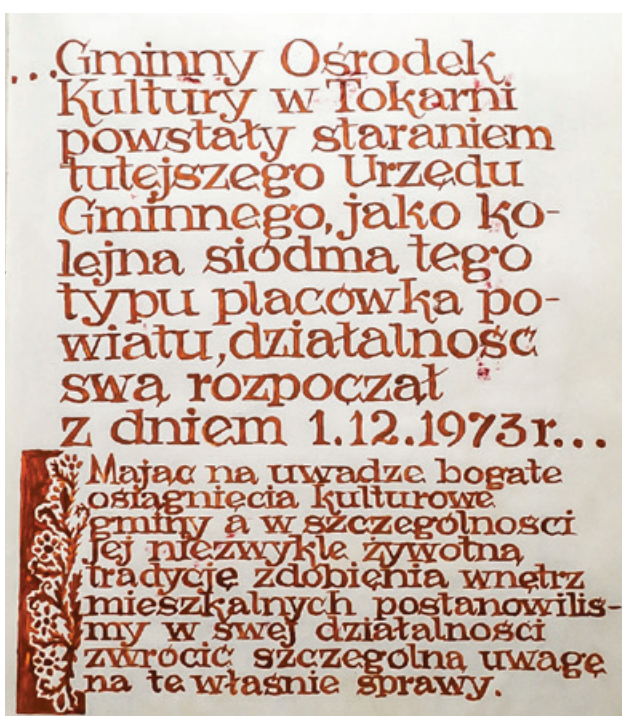 ...Gminny Ośrodek
Kultury w Tokarni
powstały staraniem
tutejszego Urzędu
Gminnego, jako ko-
lejna siódma tego
typu placówka po-
wiatu, działalność
swą rozpoczął
z dniem 1.12.1973r...
Mając na uwadze bogate
osiągnięcia kulturowe
gminy a w szczególności
jej niezwykle żywotną
tradycję zdobienia wnętrz
mieszkalnych postanowiliś-
my w swej działalności
zwrócić szczególną uwagę
na te właśnie sprawy.